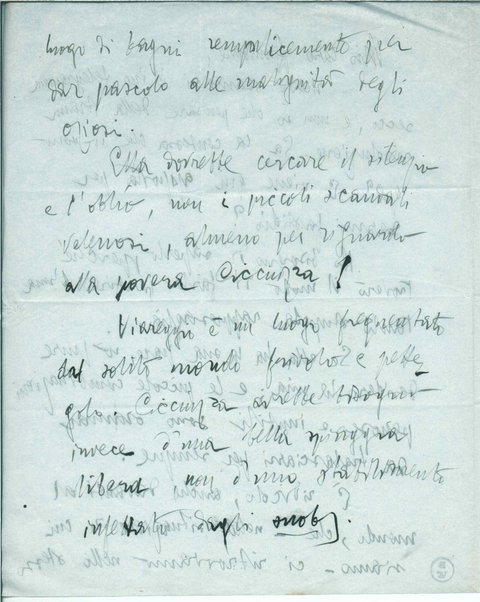 luogo di bagni semplicemente per
dar pascolo alle malignità degli
oziosi.
Ella dovrebbe cercare il silenzio
e l'oblio, non i piccoli scandali
velenosi, almeno per riguardo
alla povera Cicciuzza!
Viareggio è un luogo frequentato
dal solito mondo frivolo e pette-
golo. Cicciuzza avrebbe bisogno
invece d'una bella spiaggia
libera non d'uno stabilimento
infettato dagli snob.